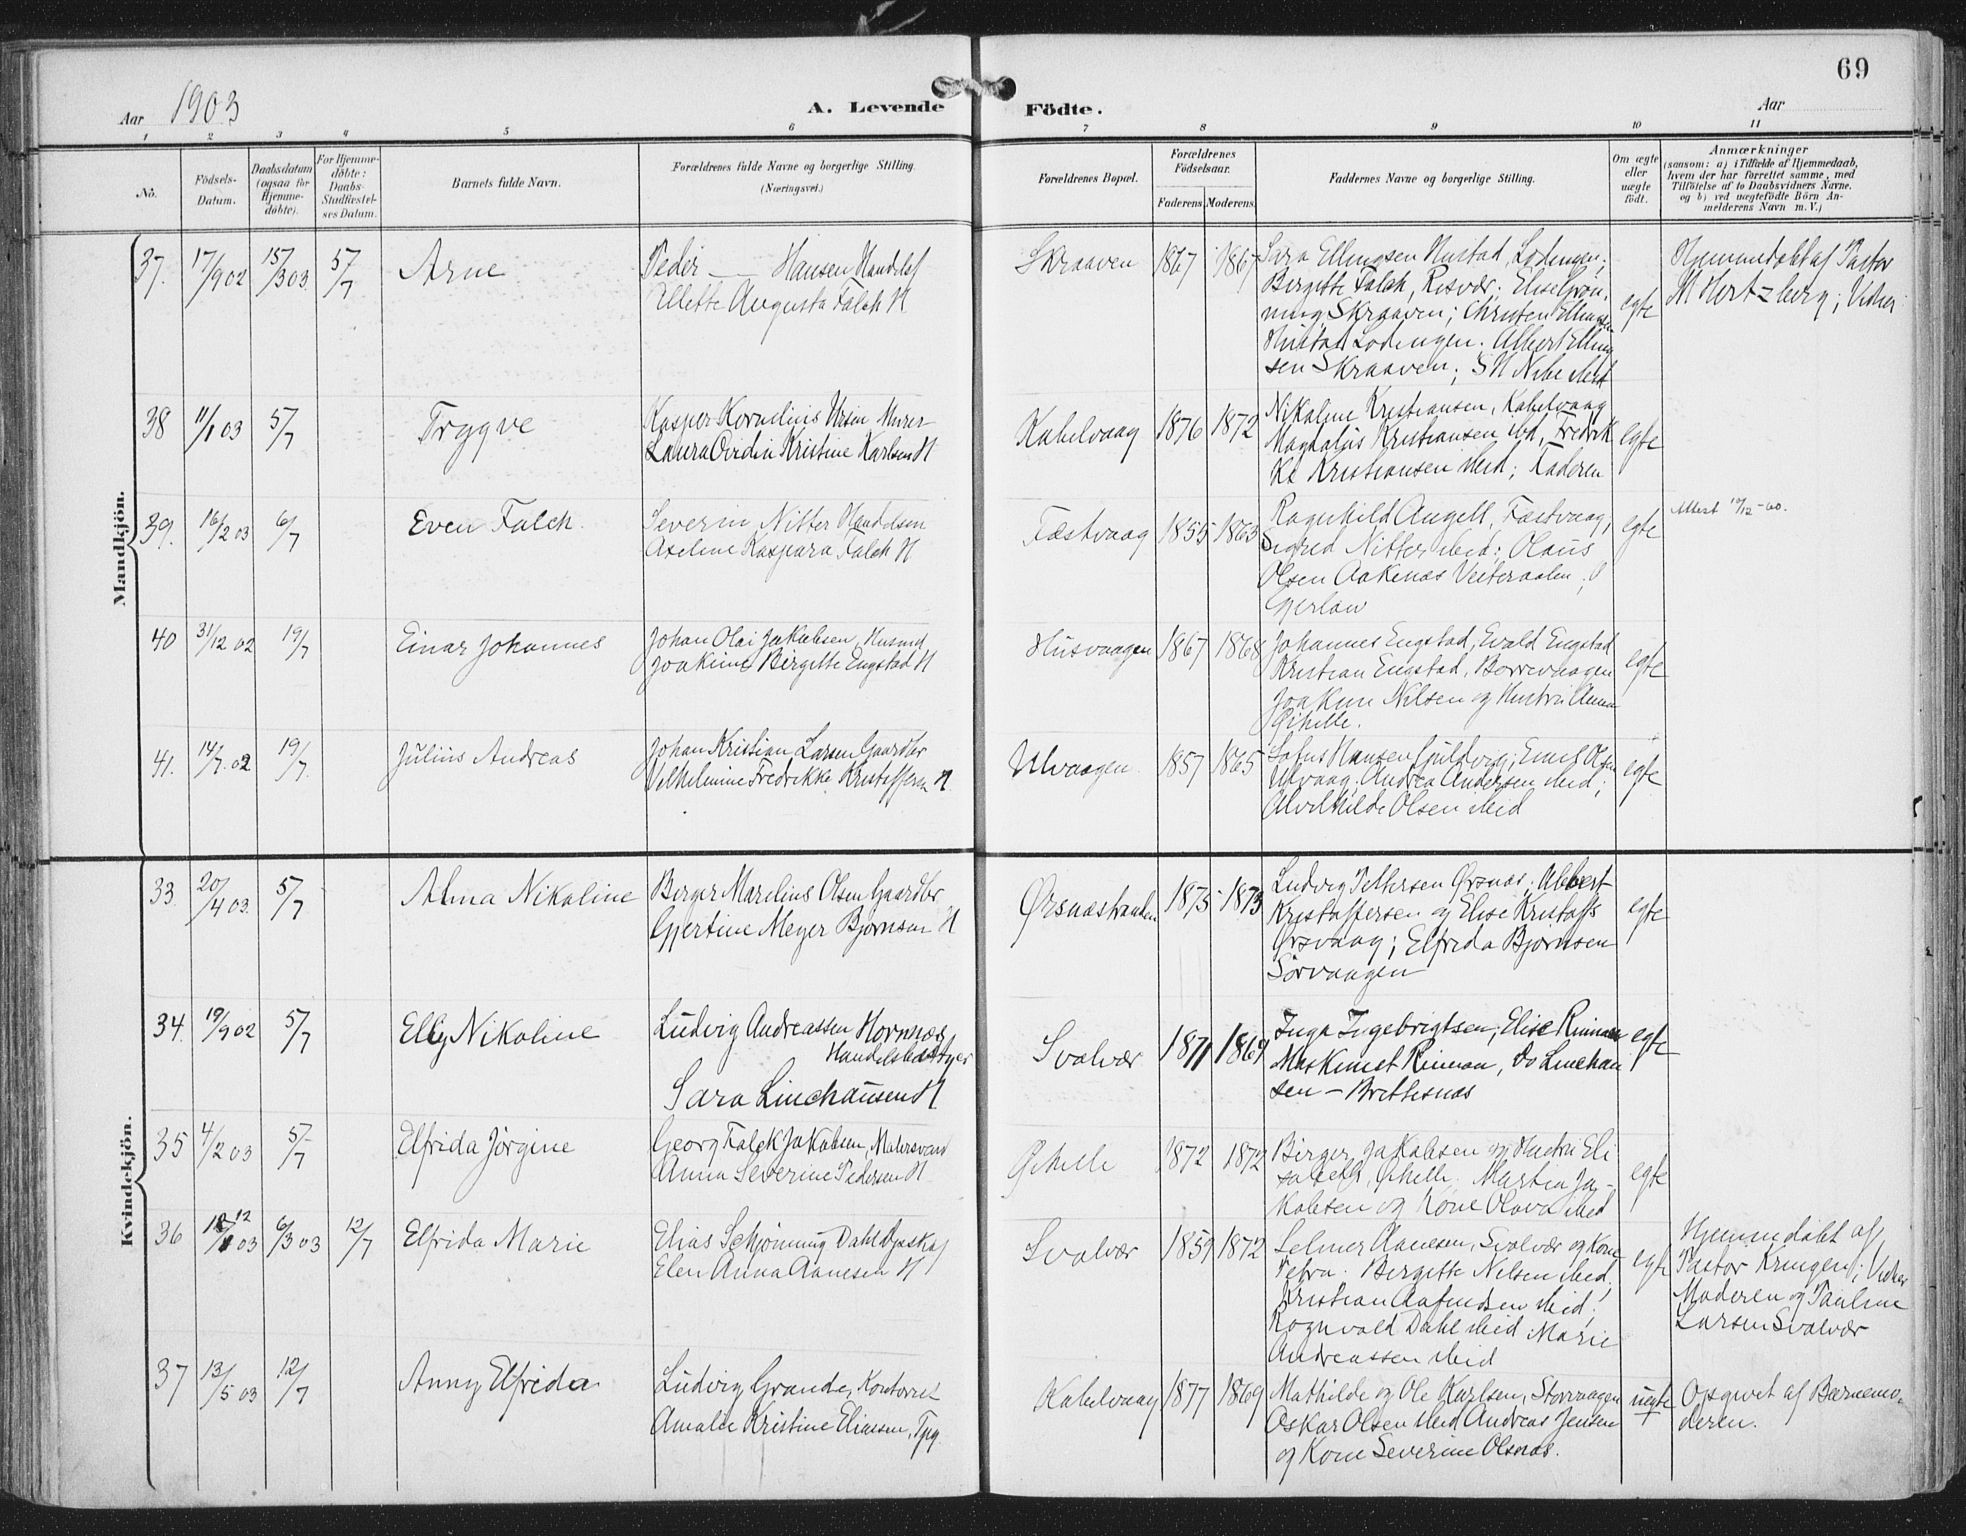 69
Aar 1903
A. Levende Födte.
Aar
1 2 3 4 5 6 7 8 9 10 11
No.
Födsels-
Datum.
Daabsdatum
(ogsaa for
Hjemme-
döbte).
For Hjemme-
döbte:
Daabs-
Stadfæstel-
ses Datum.
Barnets fulde Navn.
Forældrenes fulde Navne og borgerlige Stilling.
(Næringsvei.)
Forældrenes Bopæl.
Forældrenes
Födselsaar.
Faderens Moderens
Faddernes Navne og borgerlige Stilling.
Om ægte
eller
uægte
födt.
Anmærkninger
(saasom: a) i Tilfælde af Hjemmedaab,
hvem der har forrettet samme, med
Tilföielse af to Daabsvidners Navne.
og b) ved uægtefödte Börn An-
melderens Navn m. V.)
Mandkjön.
37. 17/9 02 15/3 03 5/7 Arne
Peder Hansen Handelsf
Ellette Augusta Falch H
Skraaven 1867 1867
Sara Ellingsen Hustad, Lødingen;
Birgitte Falch, Risvær; Elise Grøn-
ning Skraaven; Christen Ellingsen
Hustad Lødingen. Albert Elling
sen Skraaven;
egte
Hjemmedøbt af Pastor
M Hertzberg; Vidner
38 11/1 03 5/7 Trygve
Kasper Kornelius Ursin Murer
Laura Ovidia Kristine Karlsen H
Kabelvaag 1876 1872
Nikoline Kristiansen, Kabelvaag
Magdalus Kristiansen ibd, Fredrik
Kr Kristiansen ibid; Faderen
egte
39. 16/2 03 6/7 Even Falch.
Severin Nitter Handelsm
Axeline Kaspara Falch H
Fæstvaag 1855 1863
Ragnhild Angell, Fæstvaag,
Sigrid Nitter ibid; Olaus
Olsen Aakenes Vesteraalen;
egte
Attest 10/12-60.
40 31/12 02 19/7 Einar Johannes
Johan Olai Jakobsen, Husmd
Joakime Birgitte Engstad H
Husvaagen 1867 1868
Johannes Engstad, Evald Engstad
Kristian Engstad, Borrevaagen
Joakim Nilsen og Hustru Anna
Ørhelle.
egte
41. 14/7 02 19/7 Julius Andreas
Johan Kristian Larsen Gaardbr
Vilhelmine Fredrikke Kristoffersen H
Ulvaagen 1857 1865
Sofus Hansen Guldvig; Emil Olsen
Ulvaag; Andrea Andersen ibid;
Alvilhilde Olsen ibid
egte
Kvindekjön.
33 20/4 03 5/7 Alma Nikoline
Berger Marelius Olsen Gaardbr
Gjertine Meyer Bjørnsen H
Ørsnæstranden 1875 1873
Ludvig Pettersen Ørsnæs; Albert
Kristoffersen og Elise Kristoffs
Ørsvaag; Elfrida Bjørnsen
Sørvaagen
egte
34. 19/9 02 5/7 Elly Nikoline
Ludvig Andreassen Hornnæs
Handelsbestyrer
Sara Linchausen H
Svolvær 1871 1869
Inga Ingebrigtsen; Elise Rinman
Maskinist Rinman, do Linchau
sen - Brettesnæs
egte
35 4/2 03 5/7 Elfrida Jørgine
Georg Falck Jakobsen, Malersvend
Anna Severine Pedersen H
Ørhelle 1872 1872
Birger Jakobsen og Hustru Eli
sabeth, Ørhelle. Martin Ja-
kobsen og Kone Olava ibid
egte
36 12 03 6/3 03 12/7 Elfrida Marie
Elias Schjønning Dahl
Elen Anna Aanesen H
Svolvær 1859 1872
Selmer Aanesen, Svolvær og Kone
Petra. Birgitte Nilsen ibid;
Kristian ibid;
Rognvald Dahl ibid Marie
Andreassen ibid
egte
Hjemmedøbt af
Pastor Kringen; Vidner
Moderen og Pauline
Larsen Svolvær
37 13/5 03 12/7 Anny Elfrida
Ludvig Grande, Kontorist
Amalie Kristine Eliassen, Tjpg.
Kabelvaag 1877 1869
Mathilde og Ole Karlsen, Storvaagen
Oskar Olsen ibid Andreas Jensen
og Kone Severine Olsnæs.
uegte
Opgivet af Barnemo-
deren.